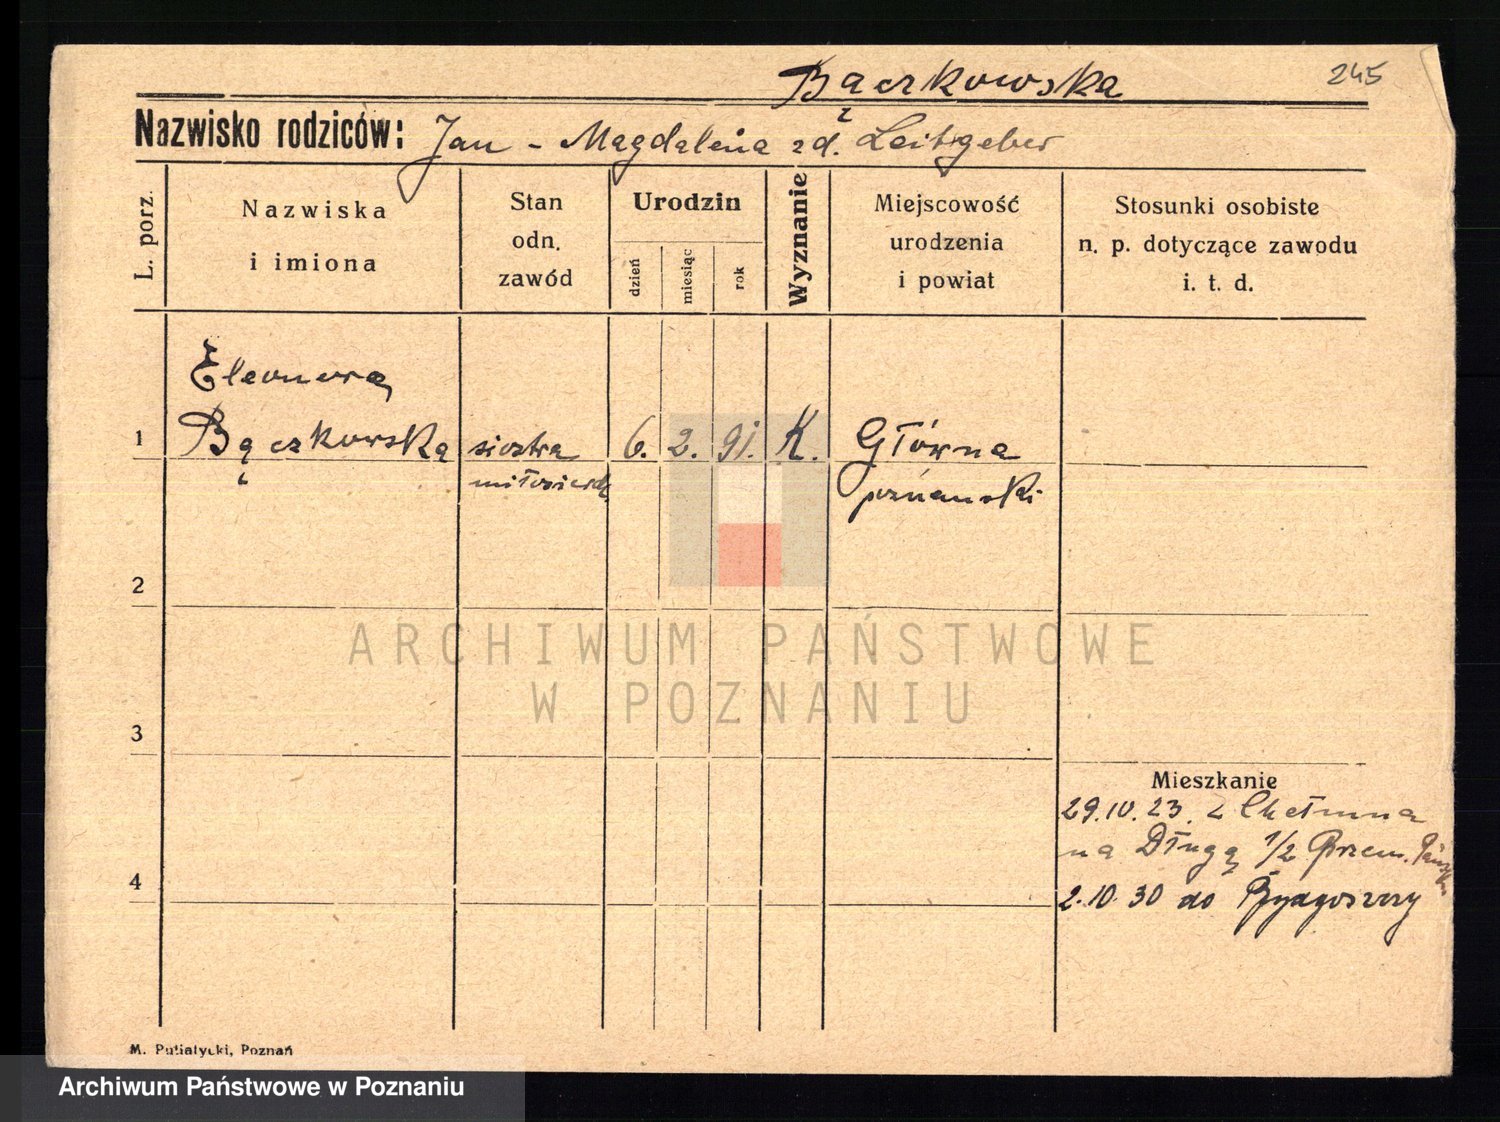 Bączkowska
245
Nazwisko rodziców: Jan - Magdalena zd. Leitgeber
L. porz.
Nazwiska
i imiona
Stan
odn.
zawód
Urodzin
dzień
miesiąc
rok
Wyznanie
Miejscowość
urodzenia
i powiat
Stosunki osobiste
n. p. dotyczące zawodu
i. t. d.
Eleonora
1 Bączkowska siostra 6. 2. 91. K. Główna
miłosierdz poznański
2
3
Mieszkanie
29.10.23. z Chełmna
na Długą 1/2 Przem.
4
2.10.30 do Bydgoszczy
M. Putiatycki, Poznań
ARCHIWUM PAŃSTWOWE
W POZNANIU
Archiwum Państwowe w Poznaniu